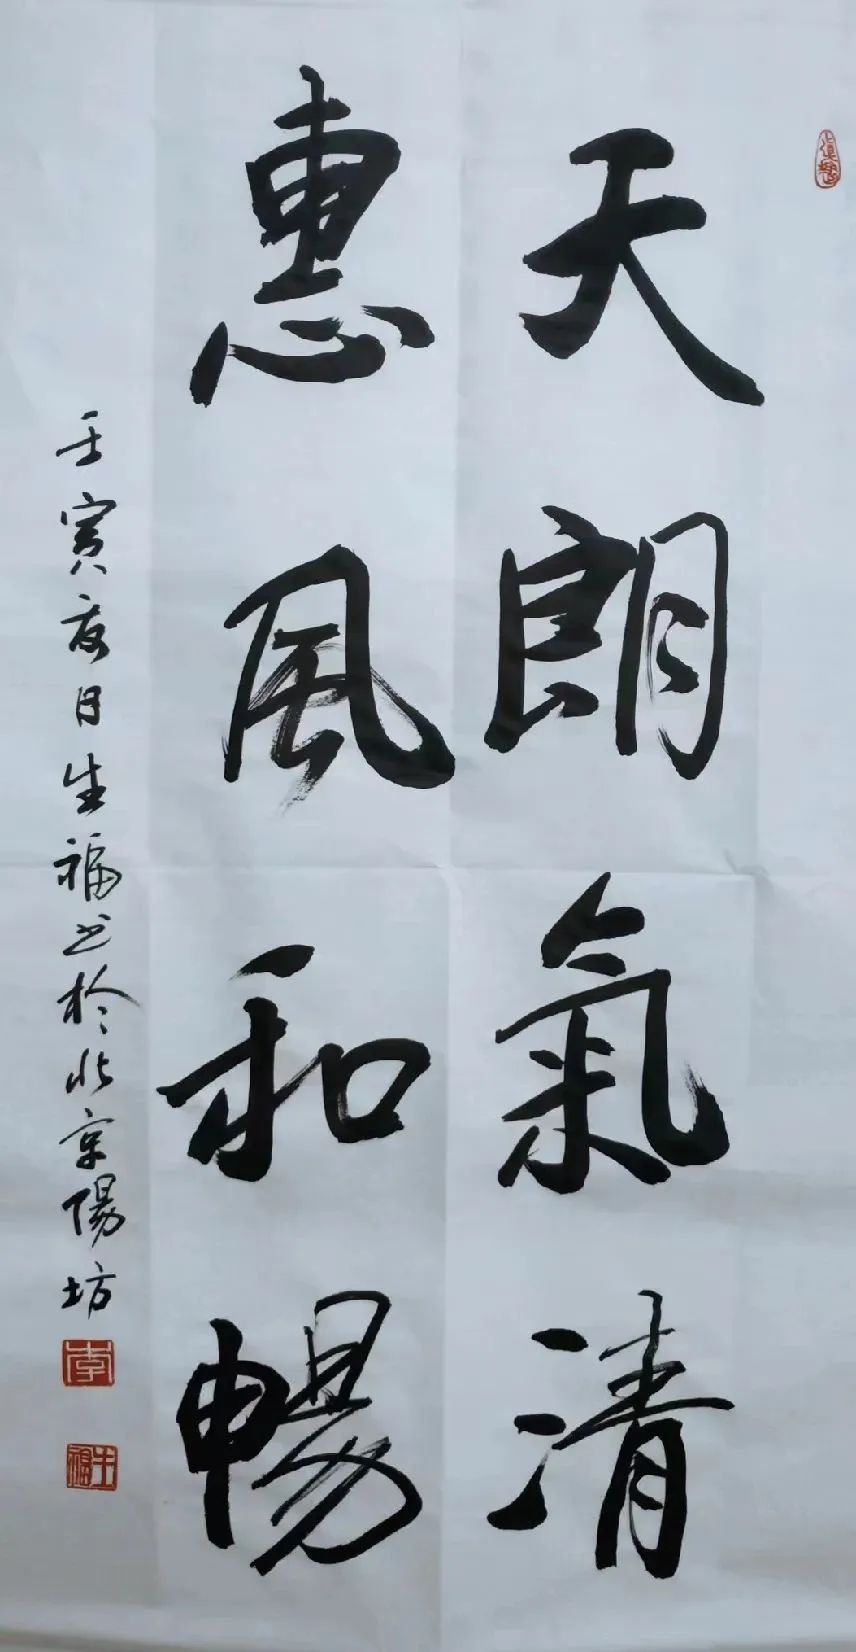 天朗氣清
惠風和暢
壬寅夏月生福书於北京陽坊
李
生福